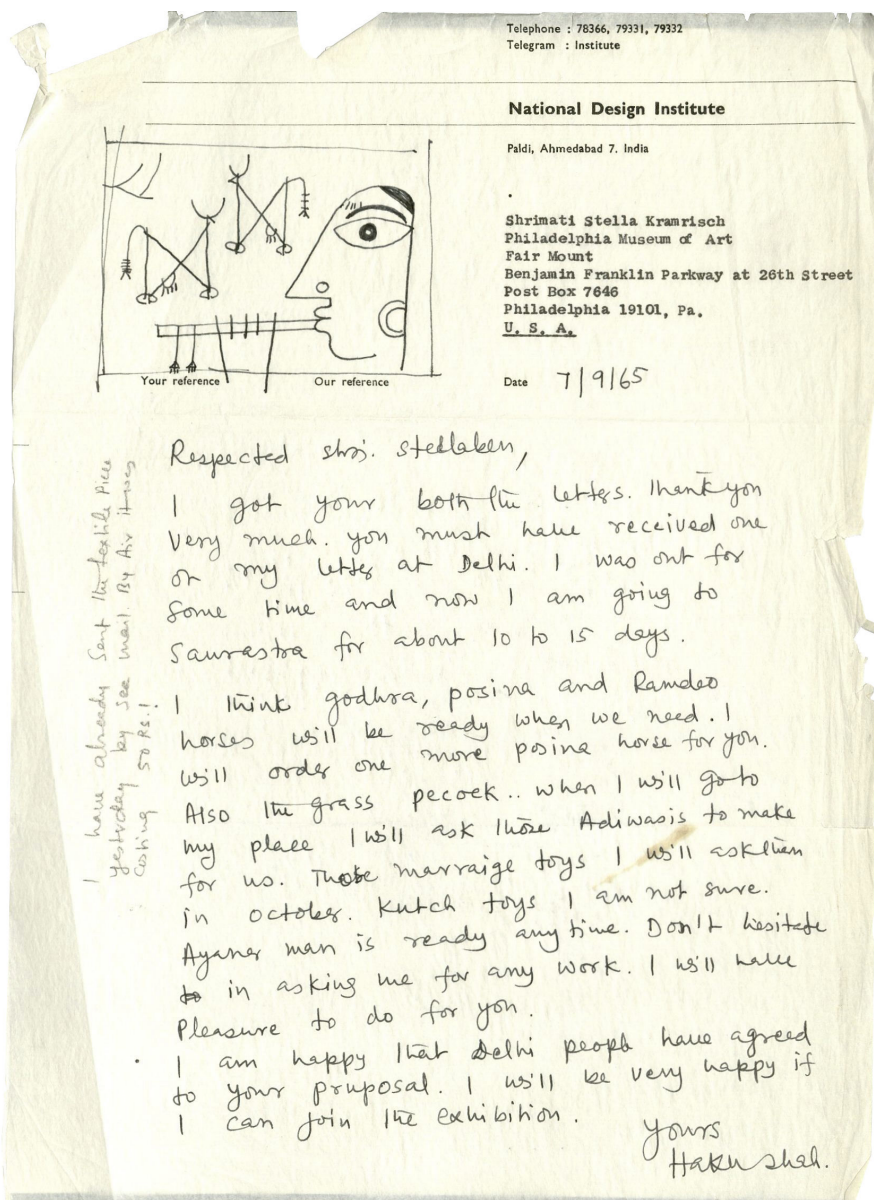 Telephone : 78366, 79331, 79332
Telegram : Institute
National Design Institute
Paldi, Ahmedabad 7. India
Shrimati Stella Kramrisch
Philadelphia Museum of Art
Fair Mount
Benjamin Franklin Parkway at 26th Street
Post Box 7646
Philadelphia 19101, Pa.
U. S. A.
Your reference
Our reference
Date 7/9/65
Respected Shri. Stellaben,
I got your both the letters. Thank you
very much. you must have received one
of my letter at Delhi. I was out for
some time and now I am going to
Saurastra for about 10 to 15 days.
I think godhra, posina and Ramdeo
horses will be ready when we need. I
will order one more posina horse for you.
Also the grass pecock.. when I will go to
my place I will ask those Adiwasis to make
for us. Those marraige toys I will ask them
in october. Kutch toys I am not sure.
Ayanar man is ready any time. Don't hesitate
to in asking me for any work. I will have
Pleasure to do for you.
I am happy that Delhi people have agreed
to your pruposal. I will be very happy if
I can join the exhibition.
Yours
Haku Shah.
I have already sent the textile piece
yestrday by see mail. By Air it was
costing 50 Rs.!